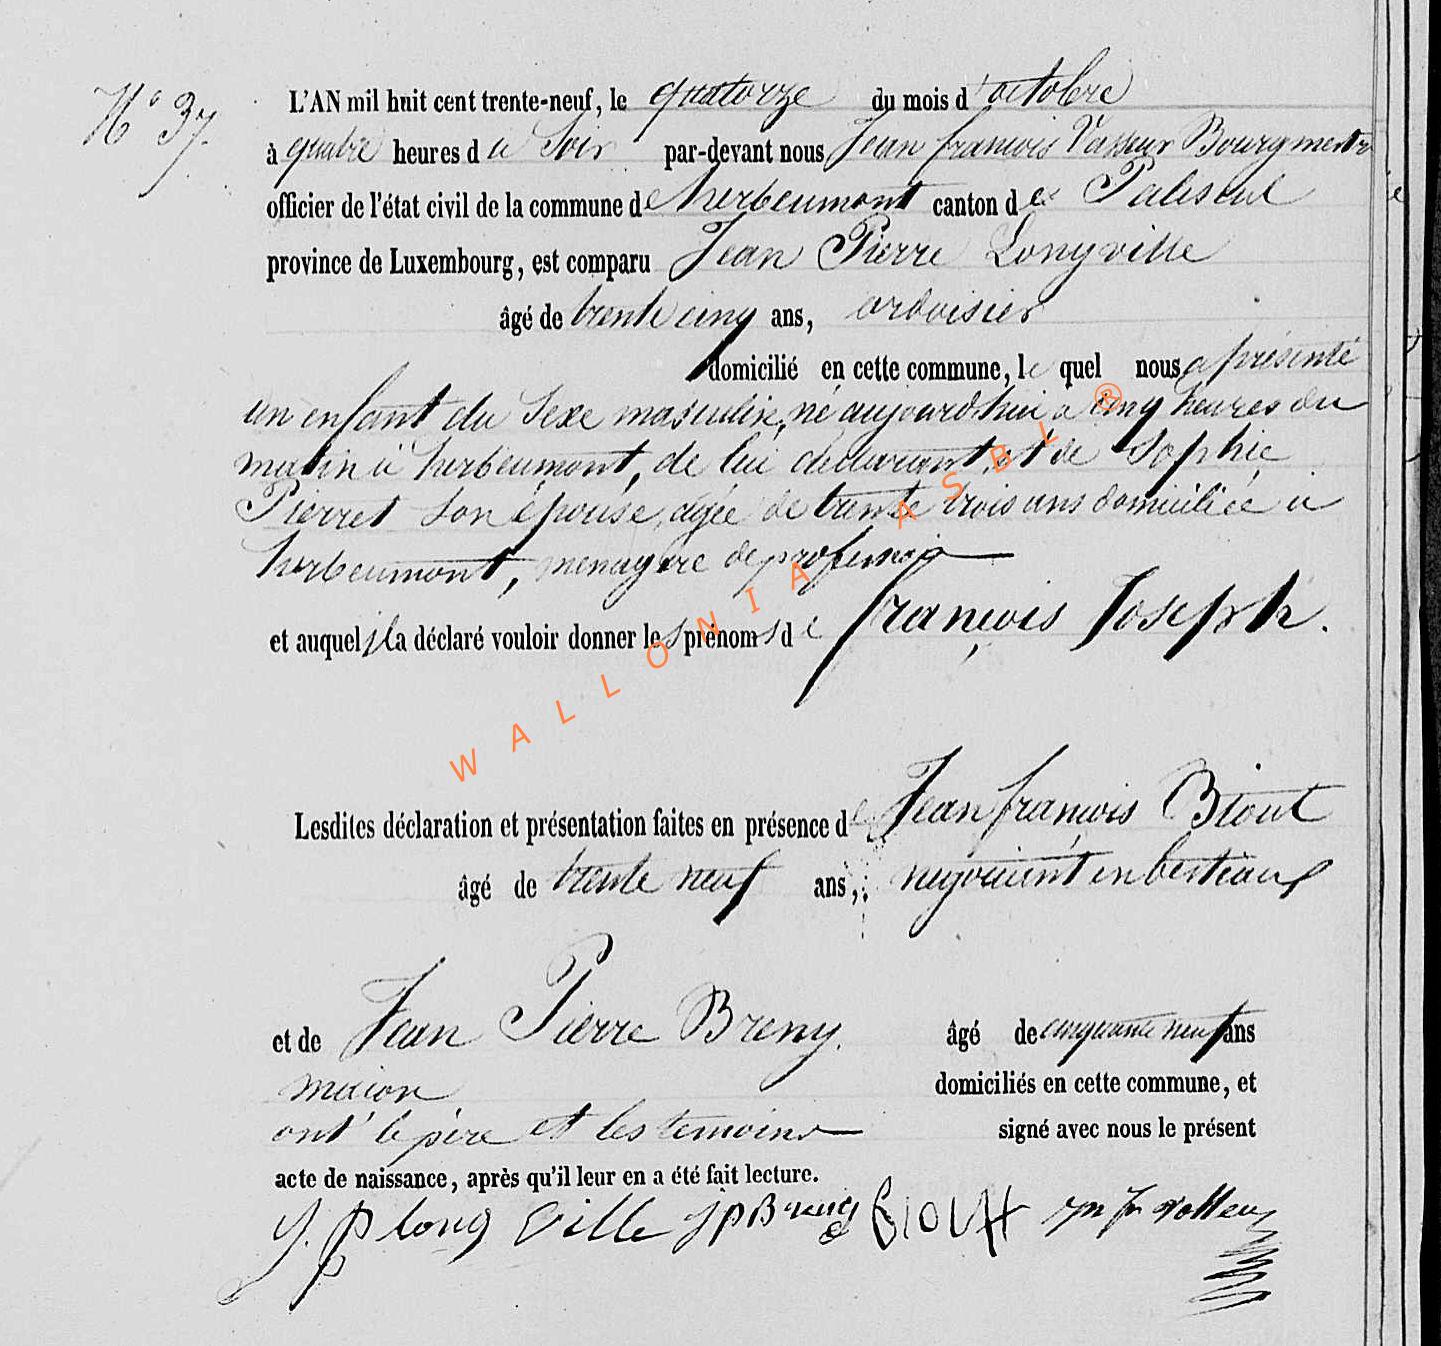 N° 37.
L'AN mil huit cent trente-neuf, le quatorze du mois d'octobre
à quatre heures du Soir par-devant nous Jean françois Vasseur Bourgmestre
officier de l'état civil de la commune de herbeumont canton de Paliseul
province de Luxembourg, est comparu Jean Pierre Longville
âgé de trente cinq ans, ardoisier
domicilié en cette commune, le quel nous a présenté
un enfant du Sexe masculin, né aujourdhui a cinq heures du
matin à herbeumont, de lui déclarant, et de Sophie
Pierret Son épouse, agée de trente trois ans domiciliée à
herbeumont, menagere de profession
et auquel il a déclaré vouloir donner les prénoms de françois Joseph.
WALLONIA ASBL ®
Lesdites déclaration et présentation faites en présence de Jean françois Biout
âgé de trente neuf ans, negociant en bestiaux
et de Jean Pierre Breny. âgé de cinquante neuf ans
macon domiciliés en cette commune, et
ont le père et les temoins signé avec nous le présent
acte de naissance, après qu'il leur en a été fait lecture.
J. P long Ville J P Breny Biout